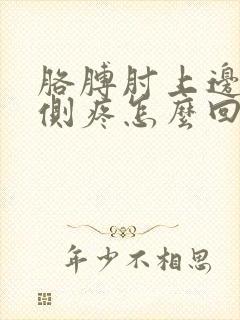 胳膊肘上邊
側疼怎麼回
年少不相思